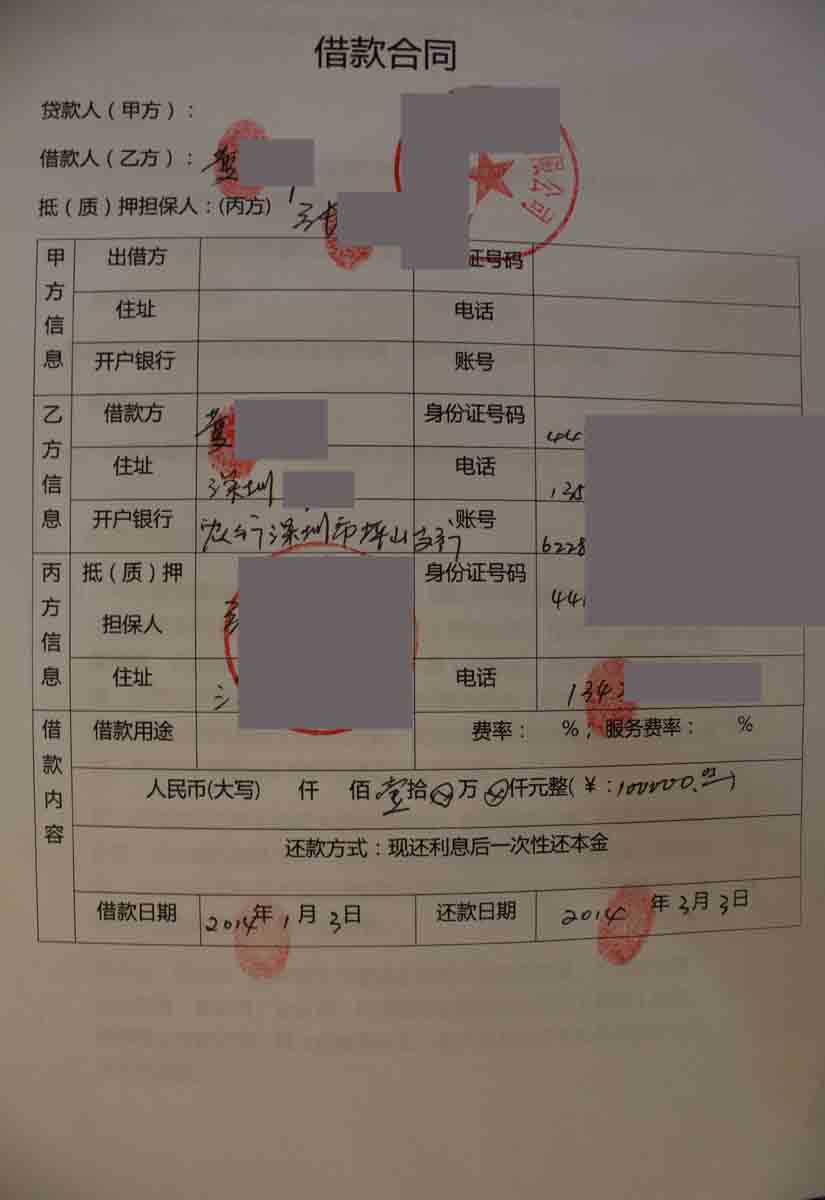 借款合同
贷款人（甲方）：
借款人（乙方）：
抵（质）押担保人：(丙方)
甲方信息 出借方 证号码
住址 电话
开户银行 账号
乙方信息 借款方 身份证号码 44
住址 深圳 电话 135
开户银行 农行深圳市坪山支行 账号 6228
丙方信息 抵（质）押担保人 身份证号码 441
住址 电话 134
借款内容 借款用途 费率： %，服务费率： %
人民币(大写) 仟 佰 壹拾 万 仟元整(￥:100000.00)
还款方式：现还利息后一次性还本金
借款日期 2014年1月3日 还款日期 2014年3月3日
公司